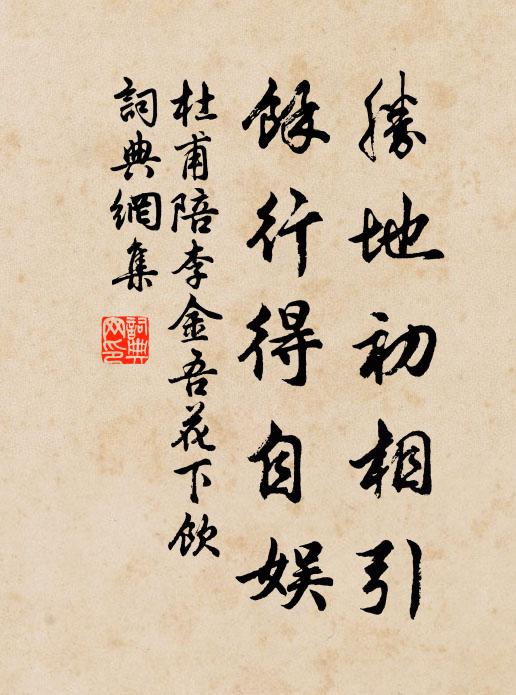 勝地初相引
餘行得自娛
杜甫陪李金吾花下飲
詞典網集
詞典網印